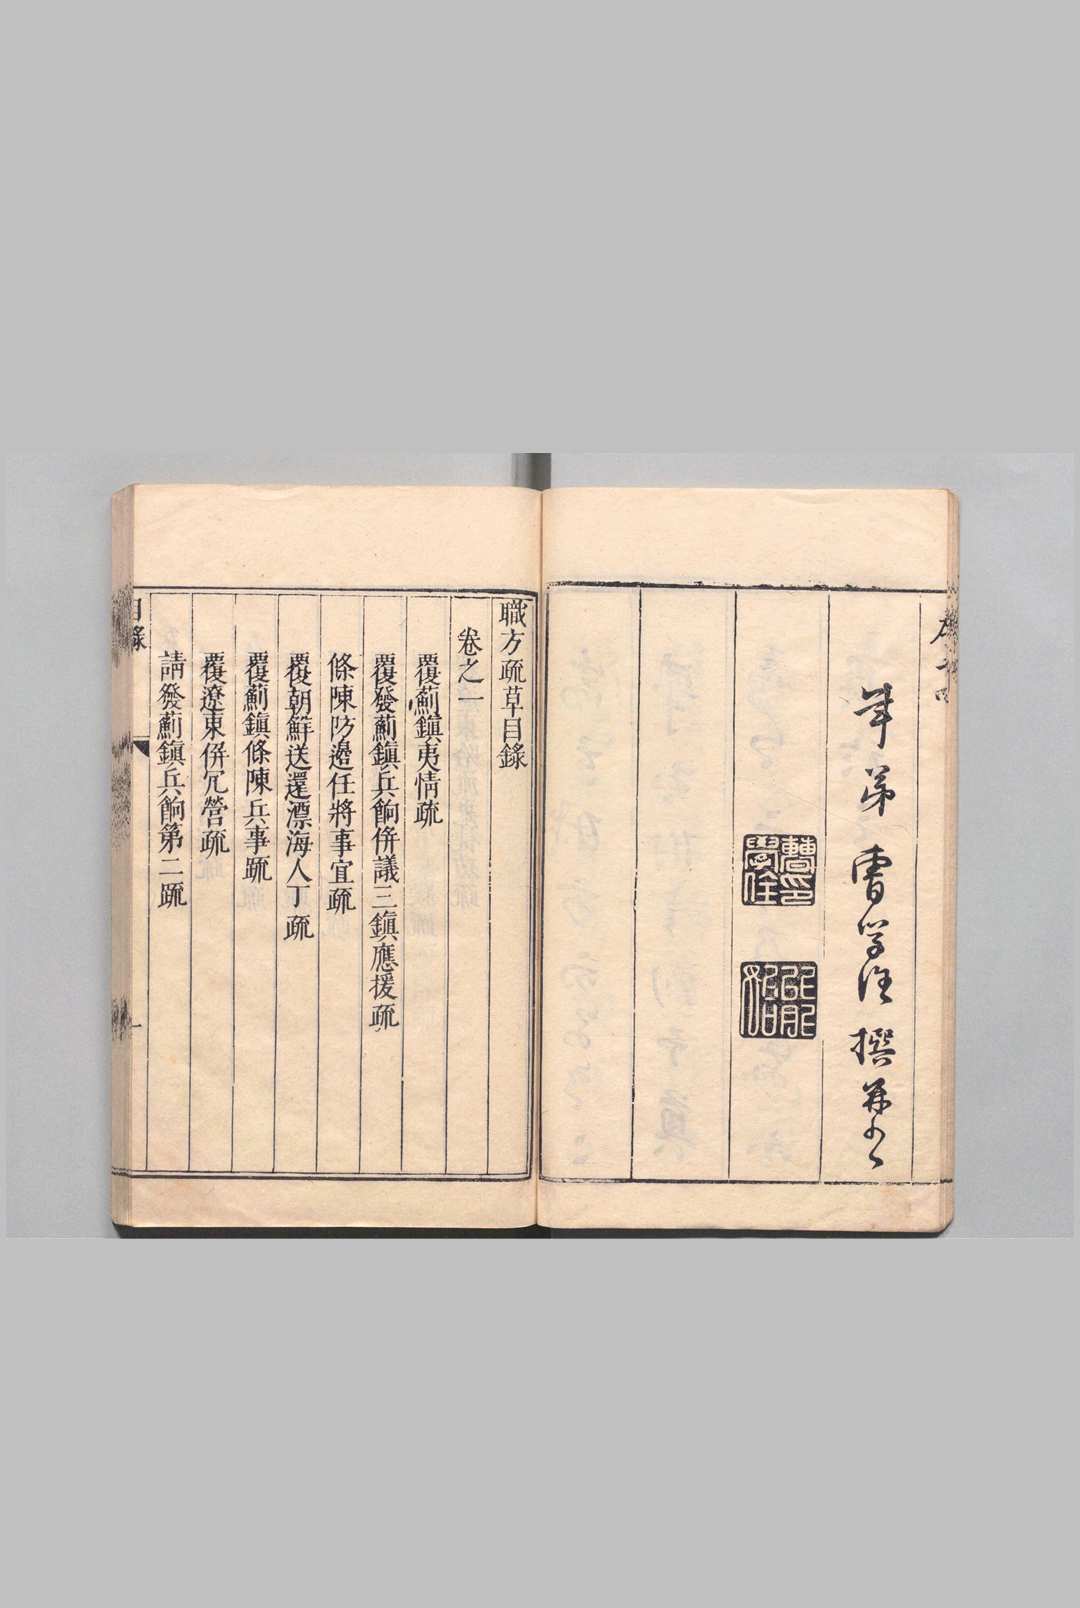 年弟曹學佺撰并書
曹印學佺
職方疏草目錄
卷之一
覆薊鎮夷情疏
覆發薊鎮兵餉併議三鎮應援疏
條陳防邊任將事宜疏
覆朝鮮送還漂海人丁疏
覆薊鎮條陳兵事疏
覆遼東併冗營疏
請發薊鎮兵餉第二疏
目錄
一